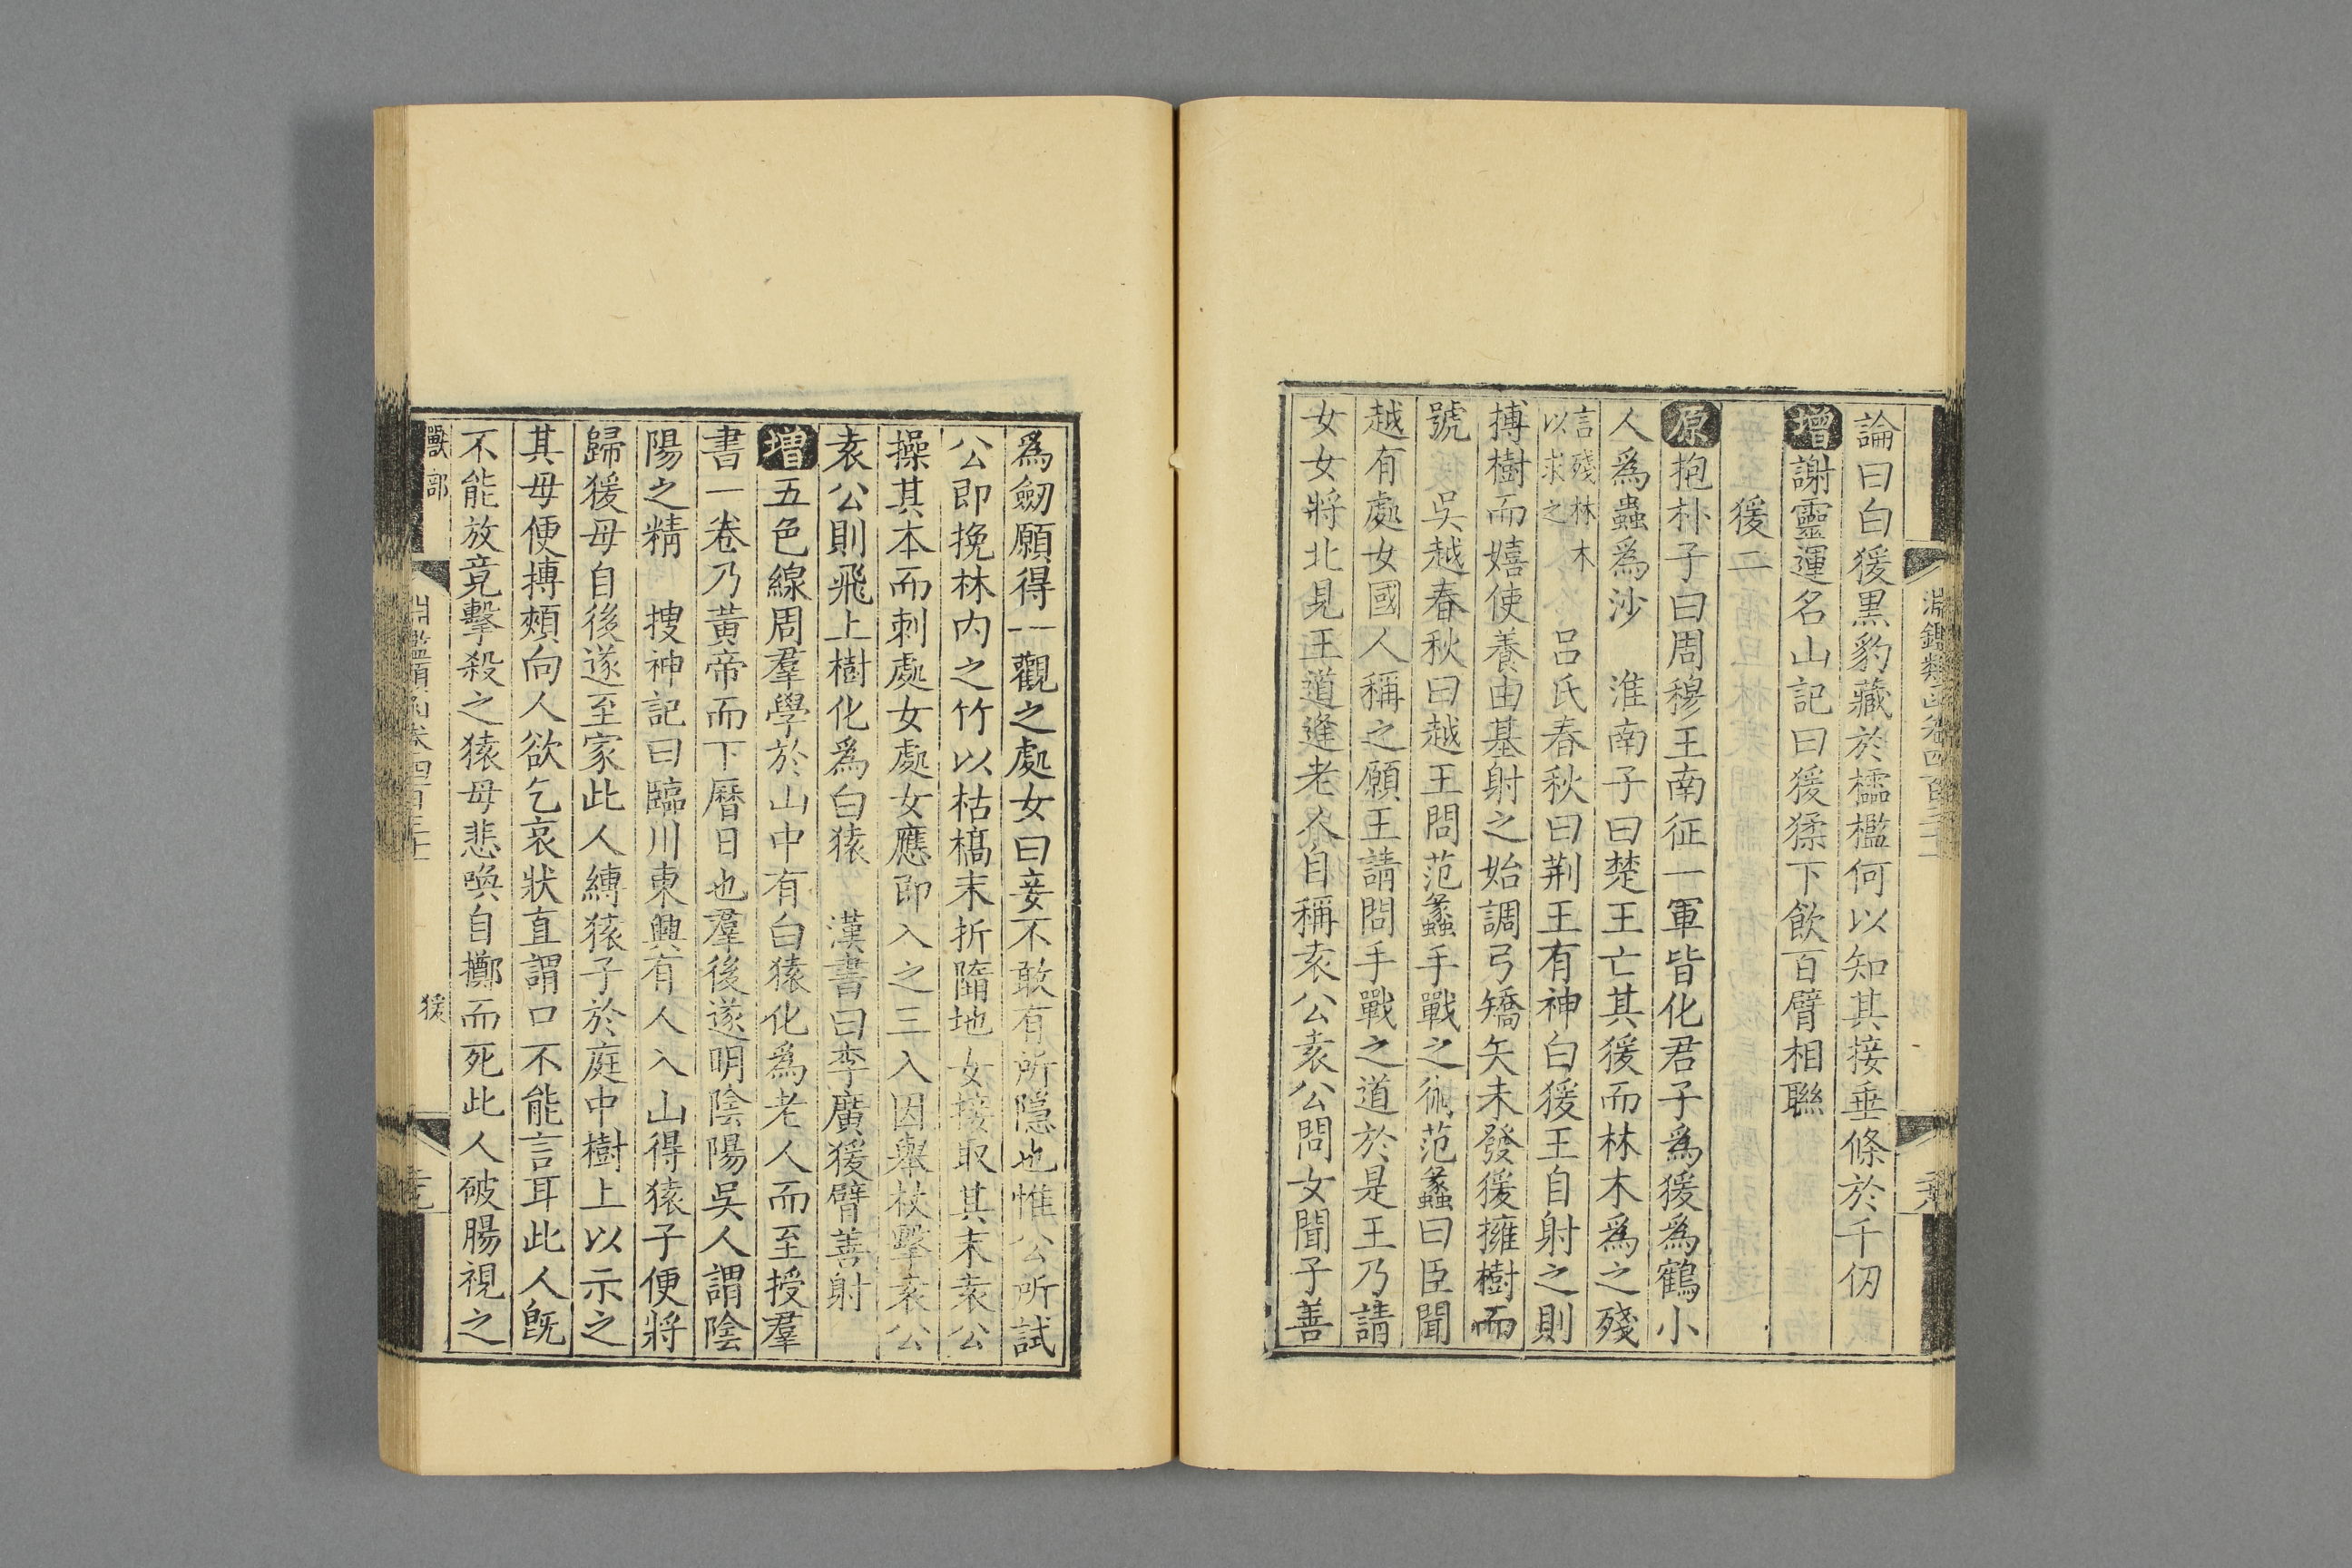 論曰白猨黒豹藏於欞檻何以知其接垂條於千仞
增謝靈運名山記曰猨猱下飲百臂相聯
猨二
原抱朴子曰周穆王南征一軍皆化君子爲猨爲鶴小
人爲蟲爲沙　淮南子曰楚王亡其猨而林木爲之殘
言殘林木
以求之
呂氏春秋曰荆王有神白猨王自射之則
搏樹而嬉使養由基射之始調弓矯矢未發猨擁樹而
號　吳越春秋曰越王問范蠡手戰之術范蠡曰臣聞
越有處女國人稱之願王請問手戰之道於是王乃請
女女將北見王道逢老人自稱袁公袁公問女聞子善
爲劒願得一觀之處女曰妾不敢有所隱也惟公所試
公即挽林内之竹以枯槁末折墮地女接取其末袁公
操其本而刺處女處女應即入之三入因舉杖擊袁公
袁公則飛上樹化爲白猿　漢書曰李廣猨臂善射
增五色線周羣學於山中有白猿化爲老人而至授羣
書一卷乃黃帝而下曆日也羣後遂明陰陽吳人謂陰
陽之精　搜神記曰臨川東興有人入山得猿子便將
歸猨母自後遂至家此人縛猿子於庭中樹上以示之
其母便摶頰向人欲乞哀狀直謂口不能言耳此人旣
不能放竟擊殺之猿母悲喚自擲而死此人破腸視之
獸部
猨